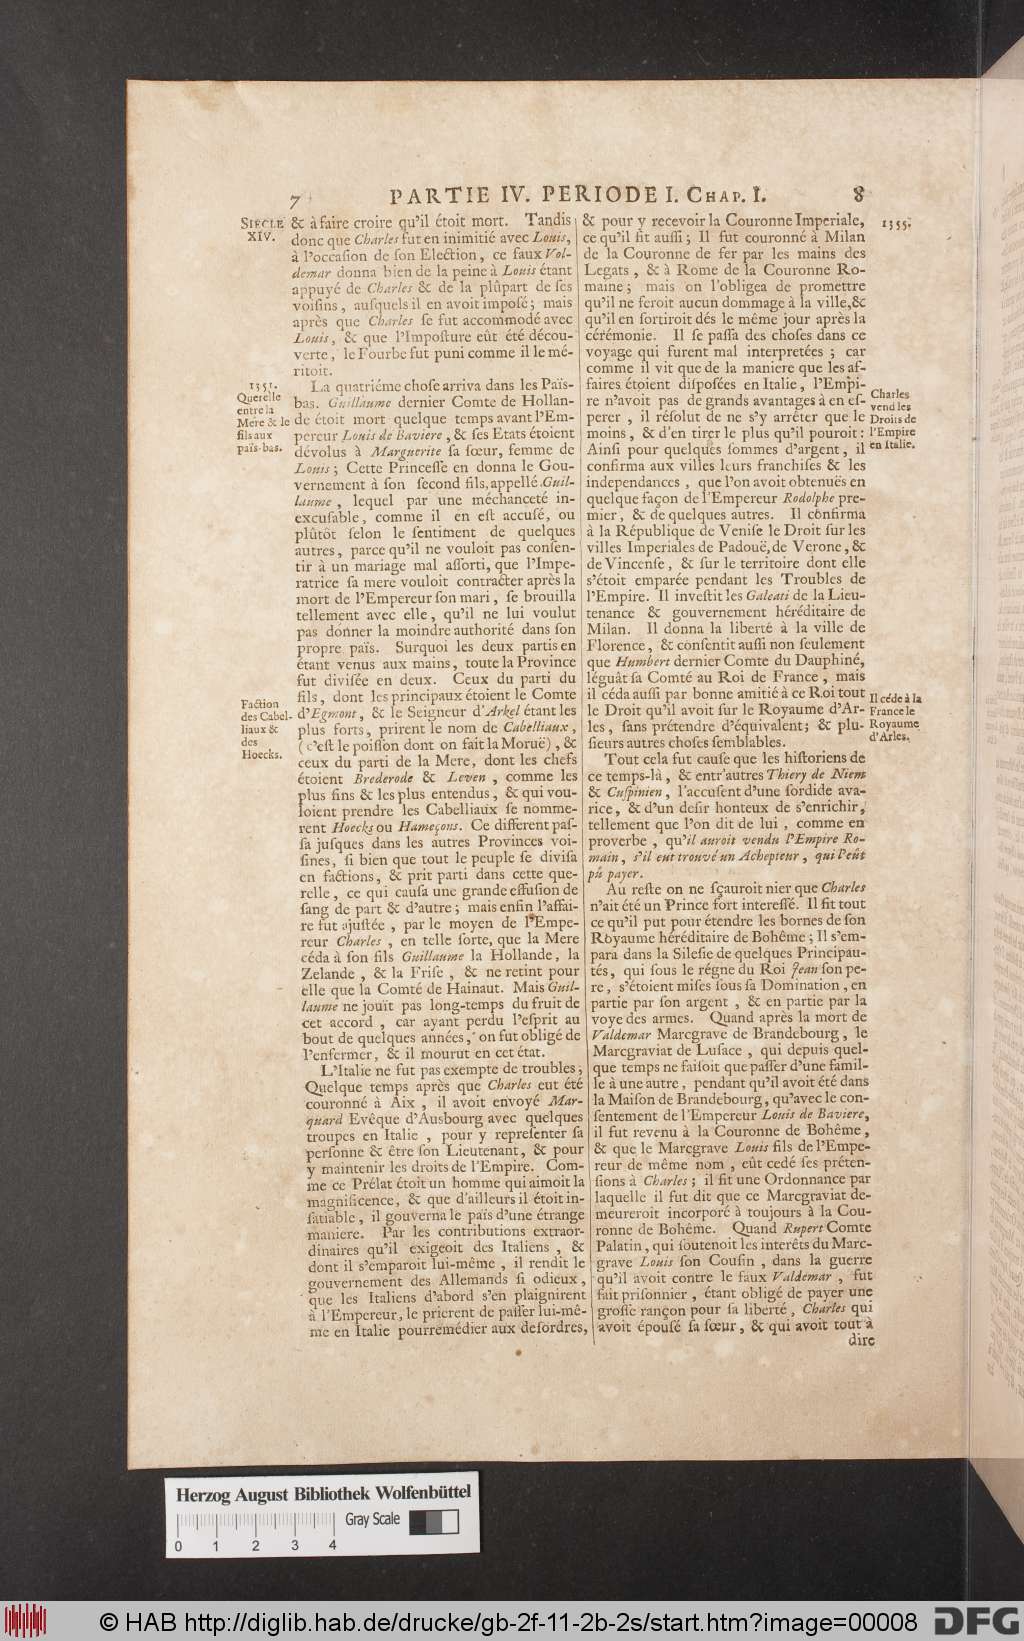 7 PARTIE IV. PERIODE I. CHAP. I. 8
SIECLE
XIV.
& à faire croire qu'il étoit mort. Tandis
donc que Charles fut en inimitié avec Louis,
à l'occaſion de ſon Election, ce faux Vol-
demar donna bien de la peine à Louis étant
appuyé de Charles & de la plûpart de ſes
voiſins, auſquels il en avoit impoſé; mais
après que Charles ſe fut accommodé avec
Louis, & que l'Impoſture eût été décou-
verte, le Fourbe fut puni comme il le mé-
ritoit.
1351.
Querelle
entre la
Mere & le
fils aux
païs-bas.
La quatriéme choſe arriva dans les Païs-
bas. Guillaume dernier Comte de Hollan-
de étoit mort quelque temps avant l'Em-
pereur Louis de Baviere, & ſes Etats étoient
dévolus à Marguerite ſa ſœur, femme de
Louis; Cette Princeſſe en donna le Gou-
vernement à ſon ſecond fils, appellé Guil-
laume, lequel par une méchanceté in-
excuſable, comme il en eſt accuſé, ou
plûtôt ſelon le ſentiment de quelques
autres, parce qu'il ne vouloit pas conſen-
tir à un mariage mal aſſorti, que l'Impe-
ratrice ſa mere vouloit contracter après la
mort de l'Empereur ſon mari, ſe brouilla
tellement avec elle, qu'il ne lui voulut
pas donner la moindre authorité dans ſon
propre païs. Surquoi les deux partis en
étant venus aux mains, toute la Province
fut diviſée en deux. Ceux du parti du
fils, dont les principaux étoient le Comte
d'Egmont, & le Seigneur d'Arkel étant les
plus forts, prirent le nom de Cabelliaux,
(c'eſt le poiſſon dont on fait la Moruë), &
ceux du parti de la Mere, dont les chefs
étoient Brederode & Leven, comme les
plus fins & les plus entendus, & qui vou-
loient prendre les Cabelliaux ſe nomme-
rent Hoecks ou Hameçons. Ce different paſ-
ſa juſques dans les autres Provinces voi-
ſines, ſi bien que tout le peuple ſe diviſa
en factions, & prit parti dans cette que-
relle, ce qui cauſa une grande effuſion de
ſang de part & d'autre; mais enfin l'affai-
re fut ajuſtée, par le moyen de l'Empe-
reur Charles, en telle ſorte, que la Mere
céda à ſon fils Guillaume la Hollande, la
Zelande, & la Friſe, & ne retint pour
elle que la Comté de Hainaut. Mais Guil-
laume ne jouït pas long-temps du fruit de
cet accord, car ayant perdu l'eſprit au
bout de quelques années, on fut obligé de
l'enfermer, & il mourut en cet état.
Faction
des Cabel-
liaux &
des
Hoecks.
L'Italie ne fut pas exempte de troubles;
Quelque temps après que Charles eut été
couronné à Aix, il avoit envoyé Mar-
quard Evêque d'Ausbourg avec quelques
troupes en Italie, pour y repreſenter ſa
perſonne & être ſon Lieutenant, & pour
y maintenir les droits de l'Empire. Com-
me ce Prélat étoit un homme qui aimoit la
magnificence, & que d'ailleurs il étoit in-
ſatiable, il gouverna le païs d'une étrange
maniere. Par les contributions extraor-
dinaires qu'il exigeoit des Italiens, &
dont il s'emparoit lui-même, il rendit le
gouvernement des Allemands ſi odieux,
que les Italiens d'abord s'en plaignirent
à l'Empereur, le prierent de paſſer lui-mê-
me en Italie pour remédier aux deſordres,
& pour y recevoir la Couronne Imperiale,
ce qu'il fit auſſi; Il fut couronné à Milan
de la Couronne de fer par les mains des
Legats, & à Rome de la Couronne Ro-
maine; mais on l'obligea de promettre
qu'il ne feroit aucun dommage à la ville, &
qu'il en ſortiroit dés le même jour après la
cérémonie. Il ſe paſſa des choſes dans ce
voyage qui furent mal interpretées; car
comme il vit que de la maniere que les af-
faires étoient diſpoſées en Italie, l'Empi-
re n'avoit pas de grands avantages à en eſ-
perer, il réſolut de ne s'y arrêter que le
moins, & d'en tirer le plus qu'il pouroit:
Ainſi pour quelques ſommes d'argent, il
confirma aux villes leurs franchiſes & les
independances, que l'on avoit obtenuës en
quelque façon de l'Empereur Rodolphe pre-
mier, & de quelques autres. Il confirma
à la République de Veniſe le Droit ſur les
villes Imperiales de Padouë, de Verone, &
de Vincenſe, & ſur le territoire dont elle
s'étoit emparée pendant les Troubles de
l'Empire. Il inveſtit les Galeati de la Lieu-
tenance & gouvernement héréditaire de
Milan. Il donna la liberté à la ville de
Florence, & conſentit auſſi non ſeulement
que Humbert dernier Comte du Dauphiné,
léguât ſa Comté au Roi de France, mais
il céda auſſi par bonne amitié à ce Roi tout
le Droit qu'il avoit ſur le Royaume d'Ar-
les, ſans prétendre d'équivalent; & plu-
ſieurs autres choſes ſemblables.
1355.
Charles
vend les
Droits de
l'Empire
en Italie.
Il céde à la
France le
Royaume
d'Arles.
Tout cela fut cauſe que les hiſtoriens de
ce temps-là, & entr'autres Thiery de Niem
& Cuſpinien, l'accuſent d'une ſordide ava-
rice, & d'un deſir honteux de s'enrichir,
tellement que l'on dit de lui, comme en
proverbe, qu'il auroit vendu l'Empire Ro-
main, s'il eut trouvé un Achepteur, qui l'eût
pû payer.
Au reſte on ne ſçauroit nier que Charles
n'ait été un Prince fort intereſſé. Il fit tout
ce qu'il put pour étendre les bornes de ſon
Royaume héréditaire de Bohême; Il s'em-
para dans la Sileſie de quelques Principau-
tés, qui ſous le régne du Roi Jean ſon pe-
re, s'étoient miſes ſous ſa Domination, en
partie par ſon argent, & en partie par la
voye des armes. Quand après la mort de
Valdemar Marcgrave de Brandebourg, le
Marcgraviat de Luſace, qui depuis quel-
que temps ne faiſoit que paſſer d'une famil-
le à une autre, pendant qu'il avoit été dans
la Maiſon de Brandebourg, qu'avec le con-
ſentement de l'Empereur Louis de Baviere,
il fut revenu à la Couronne de Bohême,
& que le Marcgrave Louis fils de l'Empe-
reur de même nom, eût cedé ſes préten-
ſions à Charles; il fit une Ordonnance par
laquelle il fut dit que ce Marcgraviat de-
meureroit incorporé à toujours à la Cou-
ronne de Bohême. Quand Rupert Comte
Palatin, qui ſoutenoit les interêts du Marc-
grave Louis ſon Couſin, dans la guerre
qu'il avoit contre le faux Valdemar, fut
fait priſonnier, étant obligé de payer une
groſſe rançon pour ſa liberté, Charles qui
avoit épouſé ſa ſœur, & qui avoit tout à
dire
Herzog August Bibliothek Wolfenbüttel
Gray Scale
0 1 2 3 4
© HAB http://diglib.hab.de/drucke/gb-2f-11-2b-2s/start.htm?image=00008
DFG